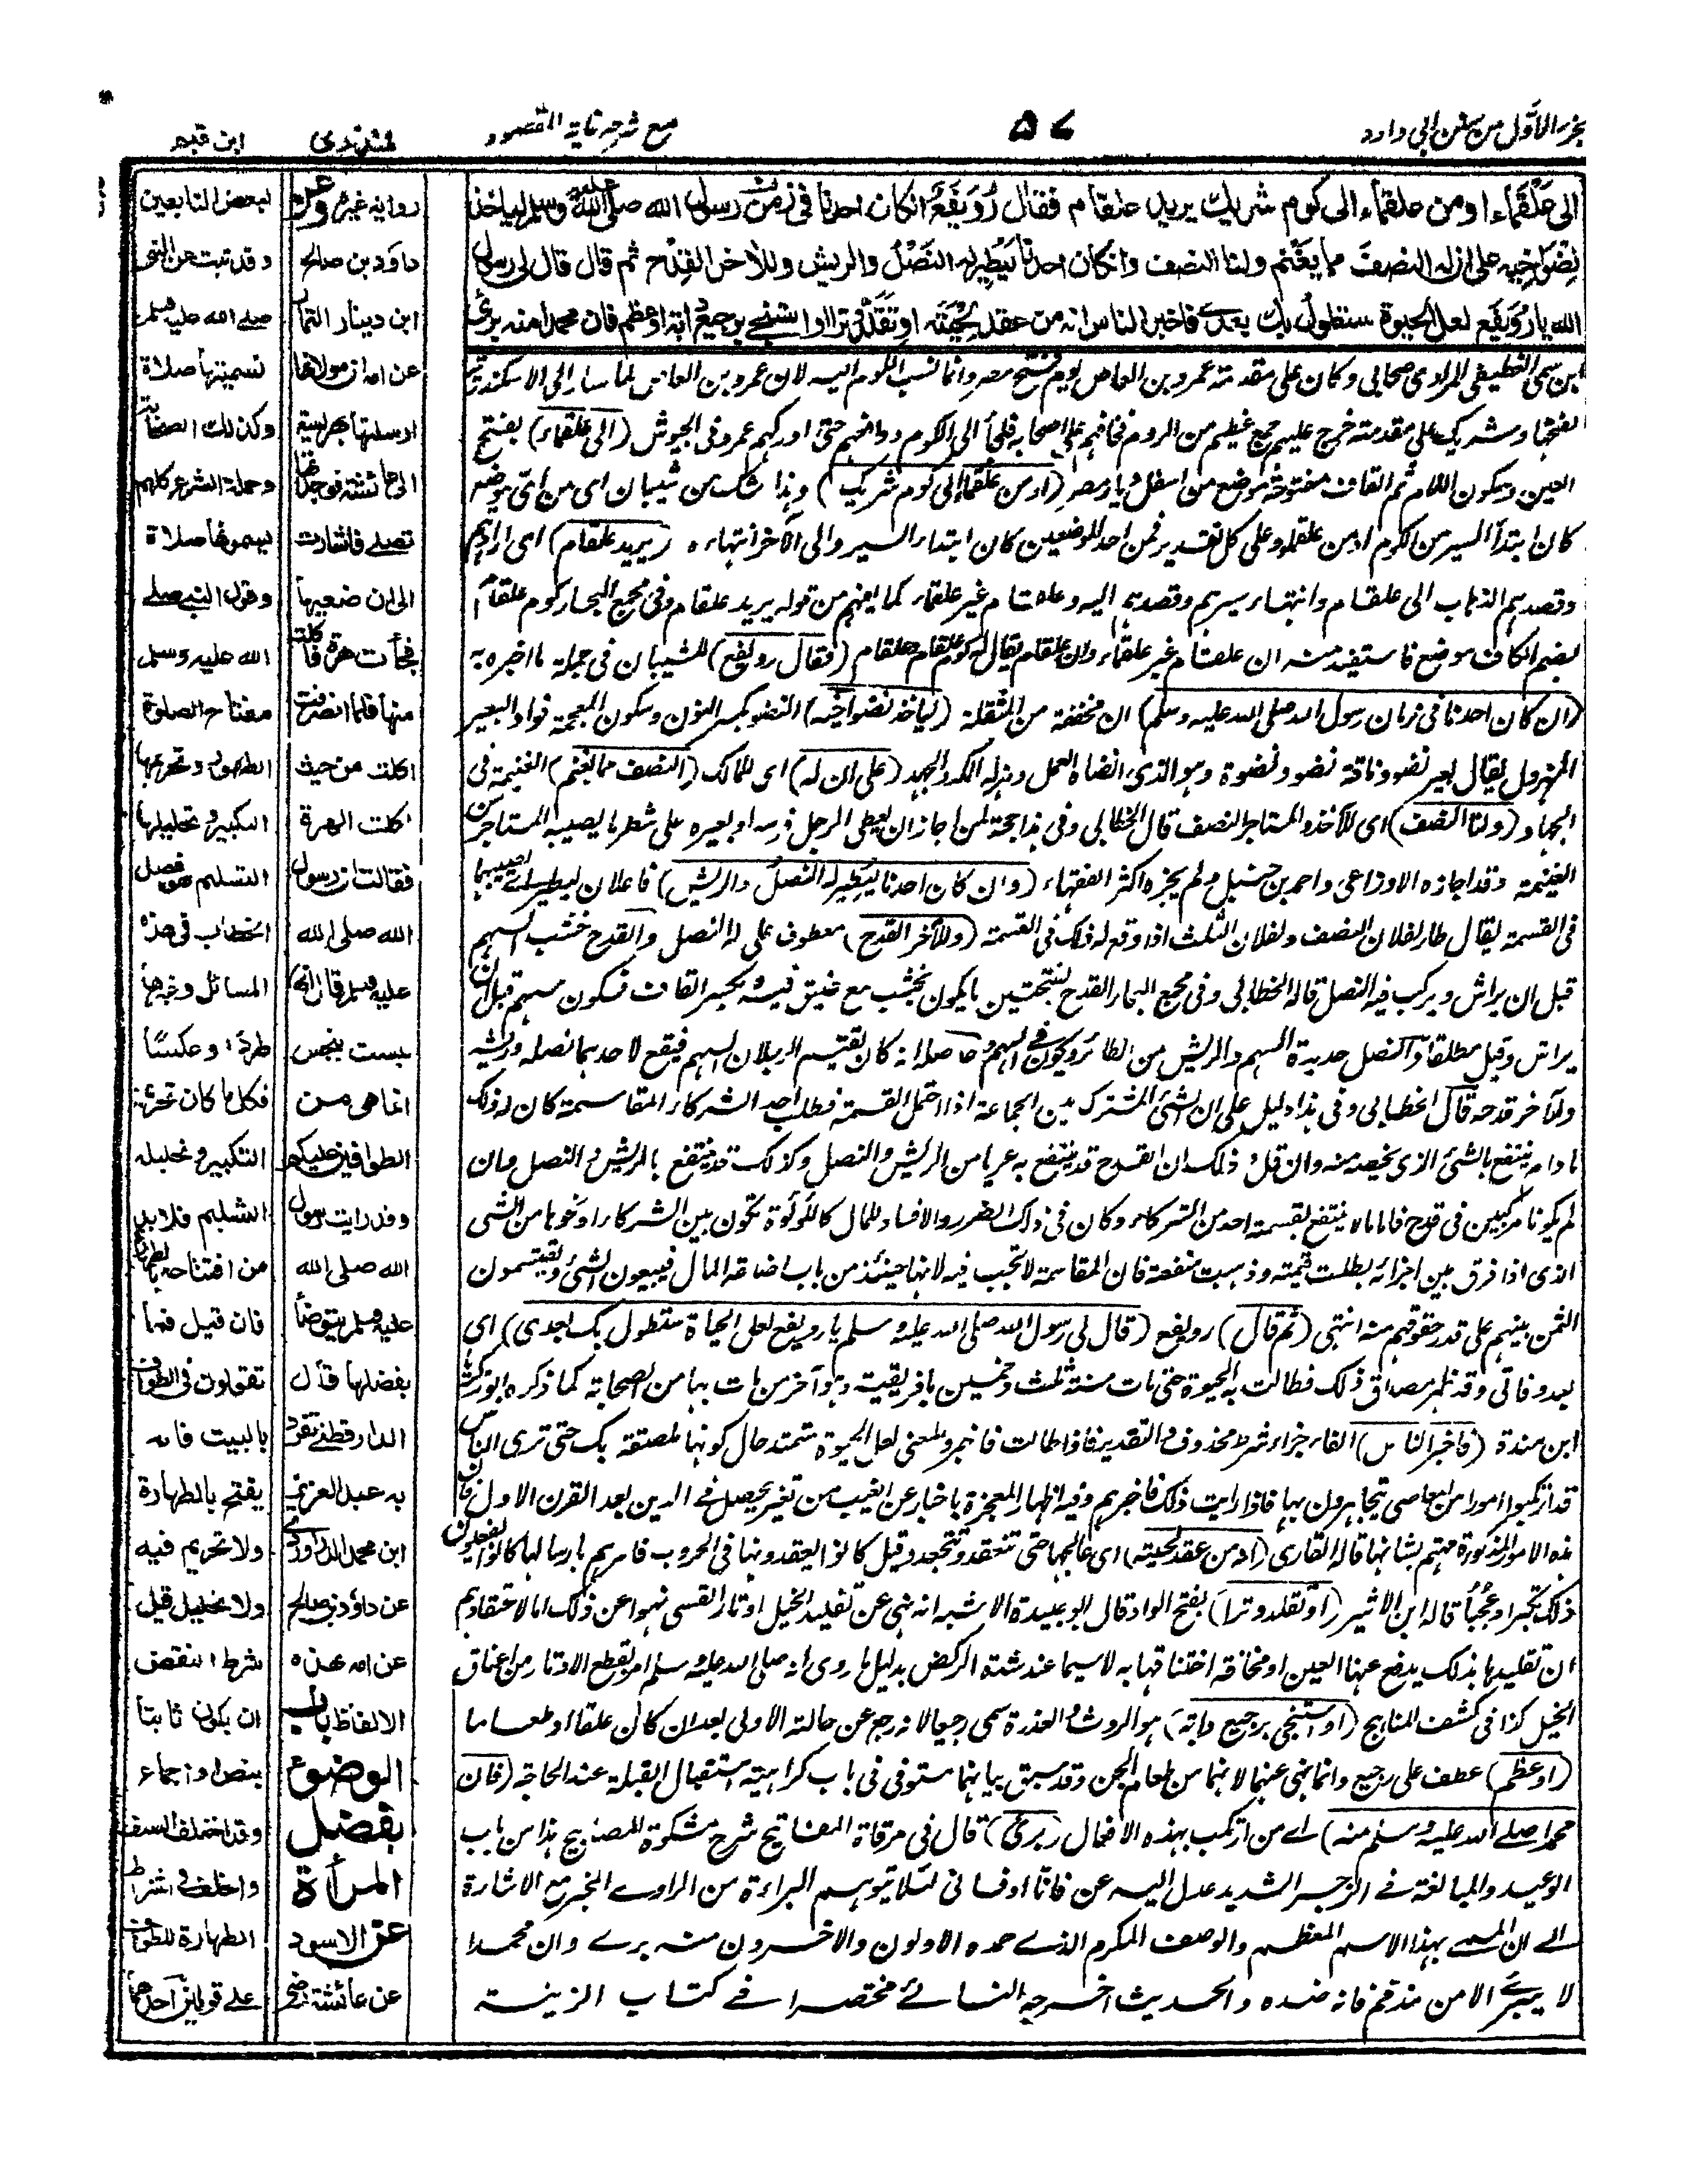 جزء الأول من سنن ابي داود
٥٧
مع شرحه غاية المقصود
منذري
ابن قيم
الى علقماء او من علقماء الى كوم شريك يريد علقام فقال رويفع ان كان احدنا في زمن رسول الله صلى الله عليه وسلم لياخذ
نضو اخيه على ان له النصف مما يغنم ولنا النصف وان كان احدنا ليطير له النصل والريش وللآخر القدح ثم قال قال لي رسول
الله يا رويفع لعل الحيوة ستطول بك بعدي فاخبر الناس انه من عقد لحيته او تقلد وترا او استنجى برجيع دابة او عظم فان محمدا منه برئ
ابن سمي الغطيفي المرادي صحابي وكان على مقدمة عمرو بن العاص يوم فتح مصر وانما نسب الكوم اليه لان عمرو بن العاص لما سار الى الاسكندرية
لفتحها وشريك على مقدمته خرج عليهم جمع عظيم من الروم فخافهم على اصحابه فلجأ الى الكوم ودافعهم حتى ادركهم عمرو في الجيوش (الى علقماء) بفتح
العين وسكون اللام ثم القاف مفتوحة موضع من اسفل ديار مصر (او من علقماء الى كوم شريك) وهذا شك من شيبان اى من اى موضع
كان ابتدأ السير من الكوم او من علقماء وعلى كل تقدير فمن احد الموضعين كان ابتداء السير والى الآخر انتهاءه (يريد علقام) اى ارادتهم
وقصدهم الذهاب الى علقام وانتهاء سيرهم وقصدهم اليه وعلقام غير علقماء كما يفهم من قوله يريد علقام وفي مجمع البحار كوم علقام
بضم الكاف موضع فاستفيد منه ان علقام غير علقماء وان علقام يقال له كوم علقام وعلقام (فقال رويفع) للشيبان في جملة ما اخبره به
(ان كان احدنا في زمان رسول الله صلى الله عليه وسلم) ان مخففة من المثقلة (لياخذ نضو اخيه) النضو بكسر النون وسكون المعجمة فواو البعير
المهزول يقال بعير نضو وناقة نضو ونضوة وهو الذي انضاه العمل وهزله الكد والجهد (على ان له) اى للمالك (النصف مما يغنم) الغنيمة في
الجهاد (ولنا النصف) اى للآخذ والمستاجر النصف قال الخطابي وفي هذا حجة لمن اجاز ان يعطي الرجل فرسه او بعيره على شطر ما يصيبه المستاجر من
الغنيمة وقد اجازه الاوزاعي واحمد بن حنبل ولم يجزه اكثر الفقهاء (وان كان احدنا ليطير له النصل والريش) فاعلان ليطير اى يصيبهما
في القسمة يقال طار لفلان النصف ولفلان الثلث اذا وقع له ذلك في القسمة (وللآخر القدح) معطوف على له النصل والقدح خشب السهم
قبل ان يراش ويركب فيه النصل قاله الخطابي وفي مجمع البحار القدح
يراش وقيل مطلقا والنصل حديدة السهم والريش من الطائر ويكون في السهم وحاصله انه كان يقتسم الرجلان السهم فيقع لاحدهما نصله وريشه
وللآخر قدحه قال الخطابي وفي هذا دليل على ان الشئ المشترك بين الجماعة اذا احتمل القسمة فطلب احد الشركاء المقاسمة كان له ذلك
ما دام ينتفع بالشئ الذي يخصه منه وان قل وذلك ان القدح قد ينتفع به عريا من الريش والنصل وكذلك قد ينتفع بالريش والنصل وان
لم يكونا مركبين في قدح فاما ما لا ينتفع بقسمته احد من الشركاء وكان في ذلك الضرر والافساد للمال كاللؤلؤة تكون بين الشركاء او نحوها من الشئ
الذي اذا فرق بين اجزائه بطلت قيمته وذهبت منفعته فان المقاسمة لا تجب فيه لانها حينئذ من باب اضاعة المال فيبيعون الشئ ويقتسمون
الثمن بينهم على قدر حقوقهم منه انتهى (ثم قال) رويفع (قال لي رسول الله صلى الله عليه وسلم يا رويفع لعل الحياة ستطول بك بعدي) اى
بعد وفاتي وقد ظهر مصداق ذلك فطالت به الحيوة حتى مات سنة ثلث وخمسين بافريقية وهو آخر من مات بها من الصحابة كما ذكره ابو زكريا
ابن مندة (فاخبر الناس) الفاء جزاء شرط محذوف والتقدير فاذا طالت فاخبر والمعنى لعل الحيوة ستمتد حال كونها ملصقة بك حتى ترى الناس
قد ارتكبوا امورا من المعاصي يتجاهرون بها فاذا رايت ذلك فاخبرهم وفيه اظهار المعجزة باخبار عن الغيب من تغير يحصل في الدين بعد القرن الاول فان
هذه الامور المذكورة مهتم بشانها قاله القاري (انه من عقد لحيته) اى عالجها حتى تتعقد وتتجعد وقيل كانوا يعقدونها في الحروب فامرهم بارسالها كانوا يفعلون
ذلك تكبرا وعجبا قاله ابن الاثير (او تقلد وترا) بفتح الواو قال ابو عبيدة الاشبه انه نهى عن تقليد الخيل اوتار القسي نهوا عن ذلك اما لاعتقادهم
ان تقليدها بذلك يدفع عنها العين او مخافة اختناقها به لا سيما عند شدة الركض بدليل ما روى انه صلى الله عليه وسلم امر بقطع الاوتار من اعناق
الخيل كذا في كشف المناهج (او استنجى برجيع دابة) هو الروث والعذرة سمى رجيعا لانه رجع عن حالته الاولى بعد ان كان علفا او طعاما
(او عظم) عطف على رجيع وانما نهى عنهما لانهما من طعام الجن وقد سبق بيانهما مستوفى في باب كراهية استقبال القبلة عند الحاجة (فان
محمدا صلى الله عليه وسلم منه) اى من ارتكب بهذه الافعال (برئ) قال في مرقاة المفاتيح شرح مشكوة المصابيح هذا من باب
الوعيد والمبالغة في الزجر الشديد عدل اليه عن فانا او فاني لئلا يتوهم البراءة من الراوي المخبر مع الاشارة
الى ان المسمى بهذا الاسم المعظم والوصف المكرم الذي حمده الاولون والآخرون منه برئ وان محمدا
لا يتبرئ الا من مذمم فانه ضده والحديث اخرجه النسائي مختصرا في كتاب الزينة
رواية غير
داود بن صالح
ابن دينار التمار
عن امه ان مولاتها
ارسلتها بهريسة
الى عائشة فوجدتها
تصلي فاشارت
الي ان ضعيها
فجاءت هرة فاكلت
منها فلما انصرفت
اكلت من حيث
اكلت الهرة
فقالت ان رسول
الله صلى الله
عليه وسلم قال انها
ليست بنجس
انما هي من
الطوافين عليكم
وقد رايت رسول
الله صلى الله
عليه وسلم يتوضأ
بفضلها قال
الدارقطني تفرد
به عبد العزيز
ابن محمد الدراوردي
عن داود بن صالح
عن امه بهذه
الالفاظ باب
الوضوء
بفضل
المرأة
عن الاسود
عن عائشة رض
لبعض التابعين
وقد ثبت عن النبي
صلى الله عليه وسلم
تسميتها صلاة
وكذلك الصحابة
وحملة الشرع كلهم
يسمونها صلاة
وقول النبي صلى
الله عليه وسلم
مفتاح الصلوة
الطهور وتحريمها
التكبير وتحليلها
التسليم هو فصل
الخطاب في هذه
المسائل وغيرها
طردا وعكسا
فكل ما كان تحريمه
التكبير وتحليله
التسليم فلا بد
من افتتاحه بالطهارة
فان قيل فما
تقولون في الطواف
بالبيت فانه
يفتتح بالطهارة
ولا تحريم فيه
ولا تحليل قيل
شرط النقض
ان يكون ثابتا
بنص او اجماع
وقد اختلف السلف
والخلف في اشتراط
الطهارة للطواف
على قولين احدهما